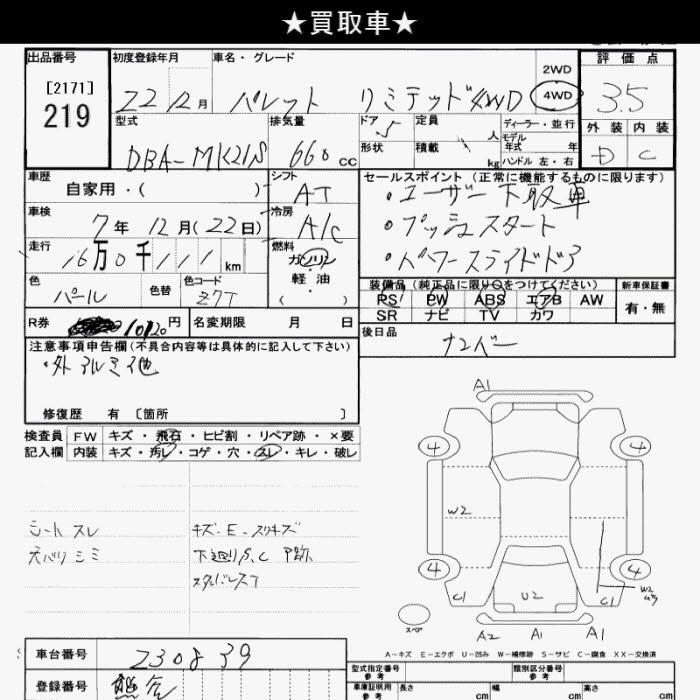 ★買取車★
出品番号
[2171]
219
初度登録年月
22 12月
車名・グレード
パレット リミテッド4WD
2WD
4WD
評価点
3.5
外装 内装
D C
型式
DBA-MK21S
排気量
660 cc
ドア
5
形状
定員
人
積載
kg
ディーラー・並行
モデル
年式 年
ハンドル 左・右
車歴
自家用・( )
シフト
AT
セールスポイント(正常に機能するものに限ります)
・ユーザー下取車
・プッシュスタート
・パワースライドドア
車検
7年 12月(22日)
冷房
A/C
走行
16万0千111km
燃料
ガソリン
軽油
( )
色
パール
色替
色コード
Z7T
装備品(純正品に限り○をつけてください)
PS PW ABS エアB AW
SR ナビ TV カワ
新車保証書
有・無
R券
10120円
名変期限 月 日
後日品
ナンバー
注意事項申告欄(不具合内容等は具体的に記入して下さい)
・外アルミ他
修復歴 有 〔箇所 〕
検査員
記入欄
FW キズ・飛石・ヒビ割・リペア跡・×要
内装 キズ・汚レ・コゲ・穴・スレ・キレ・破レ
シートスレ
天バリシミ
キズ・E・スリキズ
下廻りS.C P跡
スタッドレスT
A1
4
4
W2
4
4
C1
U2
C1
W2
スペア
A2
A1
A1
A-キズ E-エクボ U-凹み W-補修跡 S-サビ C-腐食 XX-交換済
車台番号
230839
登録番号
型式指定番号
参考
類別区分番号
参考
車庫証明用
参考
長さ
cm
幅
cm
高さ
cm